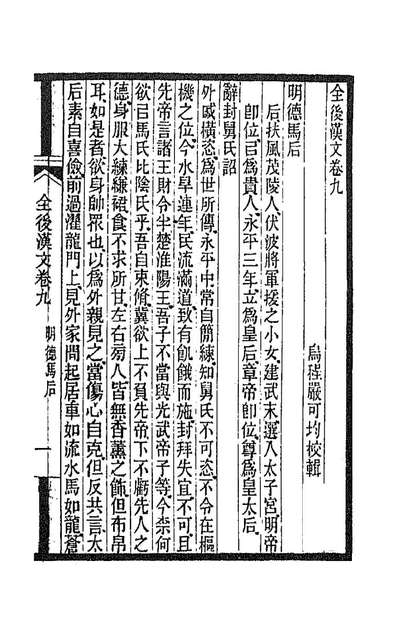 全後漢文卷九
烏程嚴可均校輯
明德馬后
后扶風茂陵人伏波將軍援之小女建武末選入太子宮明帝
卽位㠯爲貴人永平三年立爲皇后章帝卽位尊爲皇太后
辭封舅氏詔
外戚橫恣爲世所傳永平中常自簡練知舅氏不可恣不令在樞
機之位今水旱連年民流滿道致有飢餓而施封拜失宜不可且
先帝言諸王財令半楚淮陽王吾子不當與光武帝子等今柰何
欲㠯馬氏比陰氏乎吾自束脩冀欲上不負先帝下不虧先人之
德身服大練縑裙食不求所甘左右㫄人皆無香薰之飾但布帛
耳如是者欲身帥眾也以爲外親見之當傷心自克但反共言太
后素自喜儉前過濯龍門上見外家問起居車如流水馬如龍蒼
全後漢文卷九
明德馬后
一